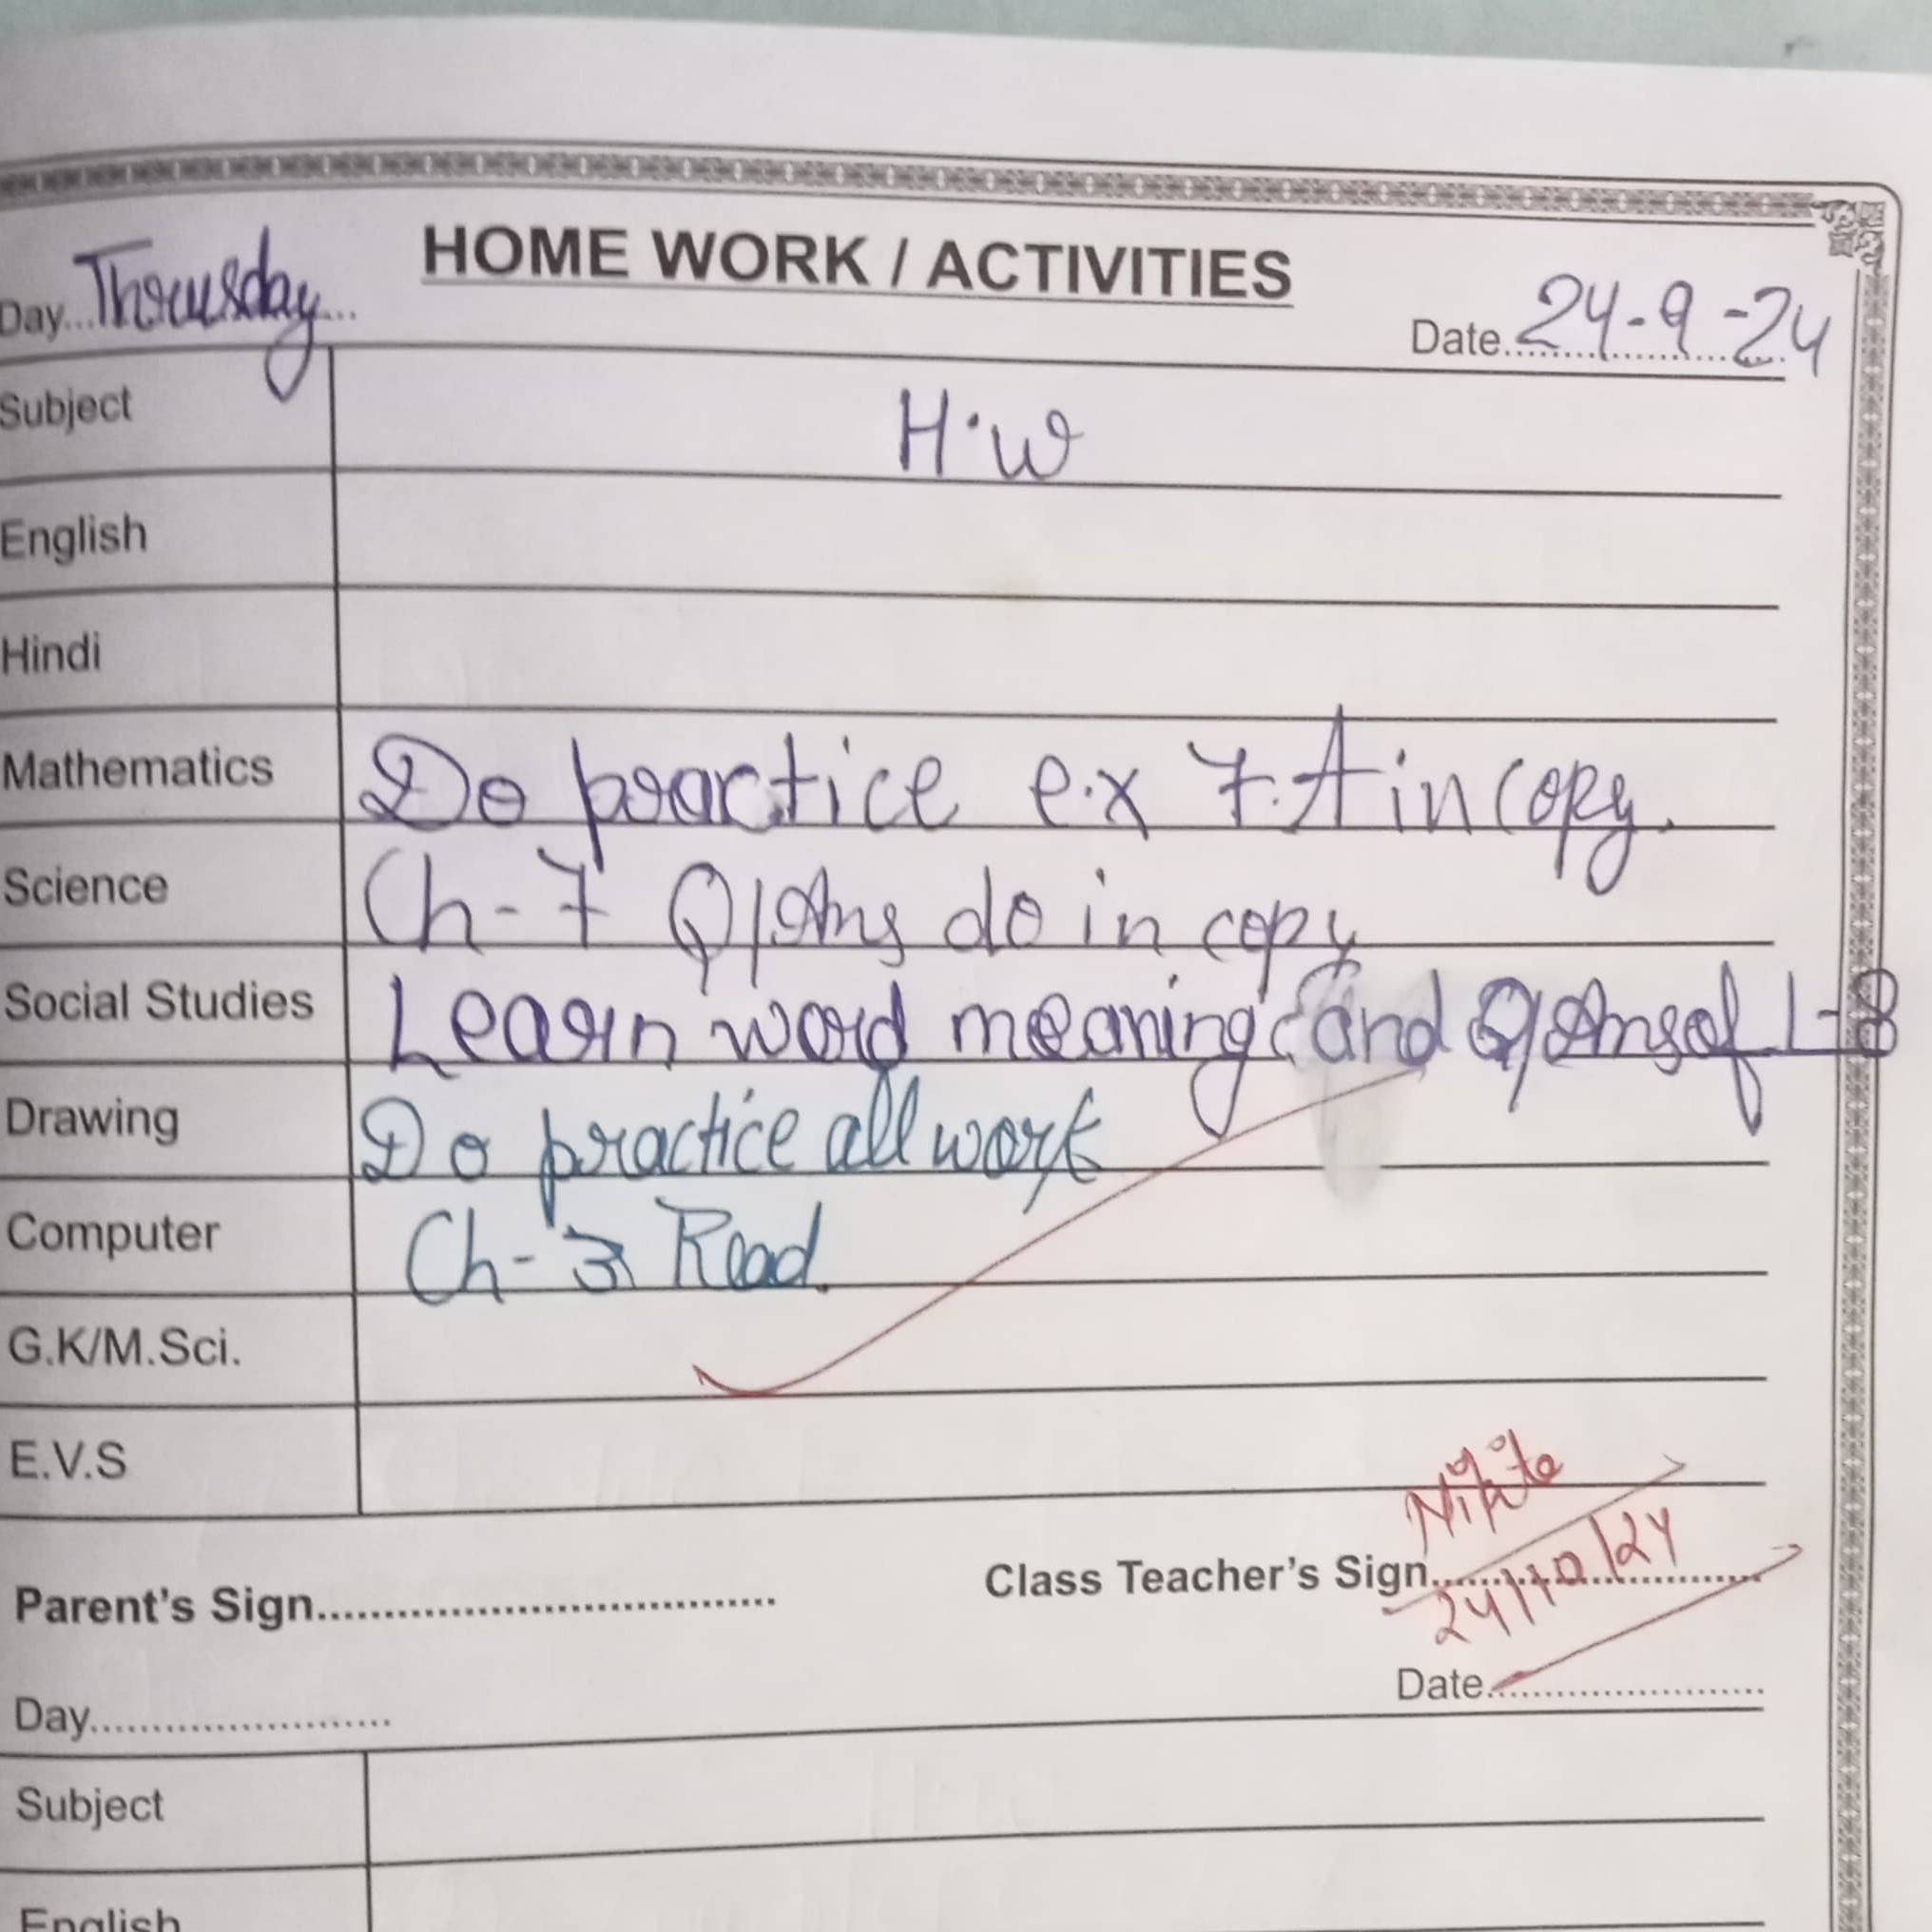 HOME WORK / ACTIVITIES
Day... Thorusday... Date... 24-9-24
Subject H.W
English
Hindi
Mathematics Do practice e.x 7.A in copy.
Science Ch-7 Q/Ans do in copy
Social Studies Learn word meaning and Q/Ans of 1-8
Drawing Do practice all work
Computer Ch-3 Read.
G.K/M.Sci.
E.V.S
Parent's Sign................................. Class Teacher's Sign.........................
24/10/24
Day....................... Date.......................
Subject
English